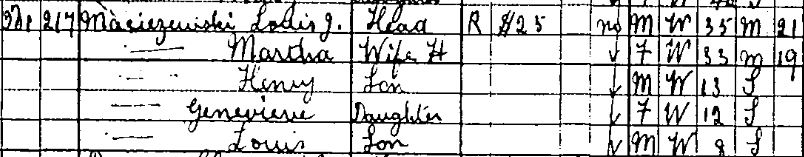 217 Maciezewski Louis J. Head R $25 no M W 35 M 21
Martha Wife H F W 33 M 19
Henry Son M W 13 S
Genevieve Daughter F W 12 S
Louis Son M W 8 S